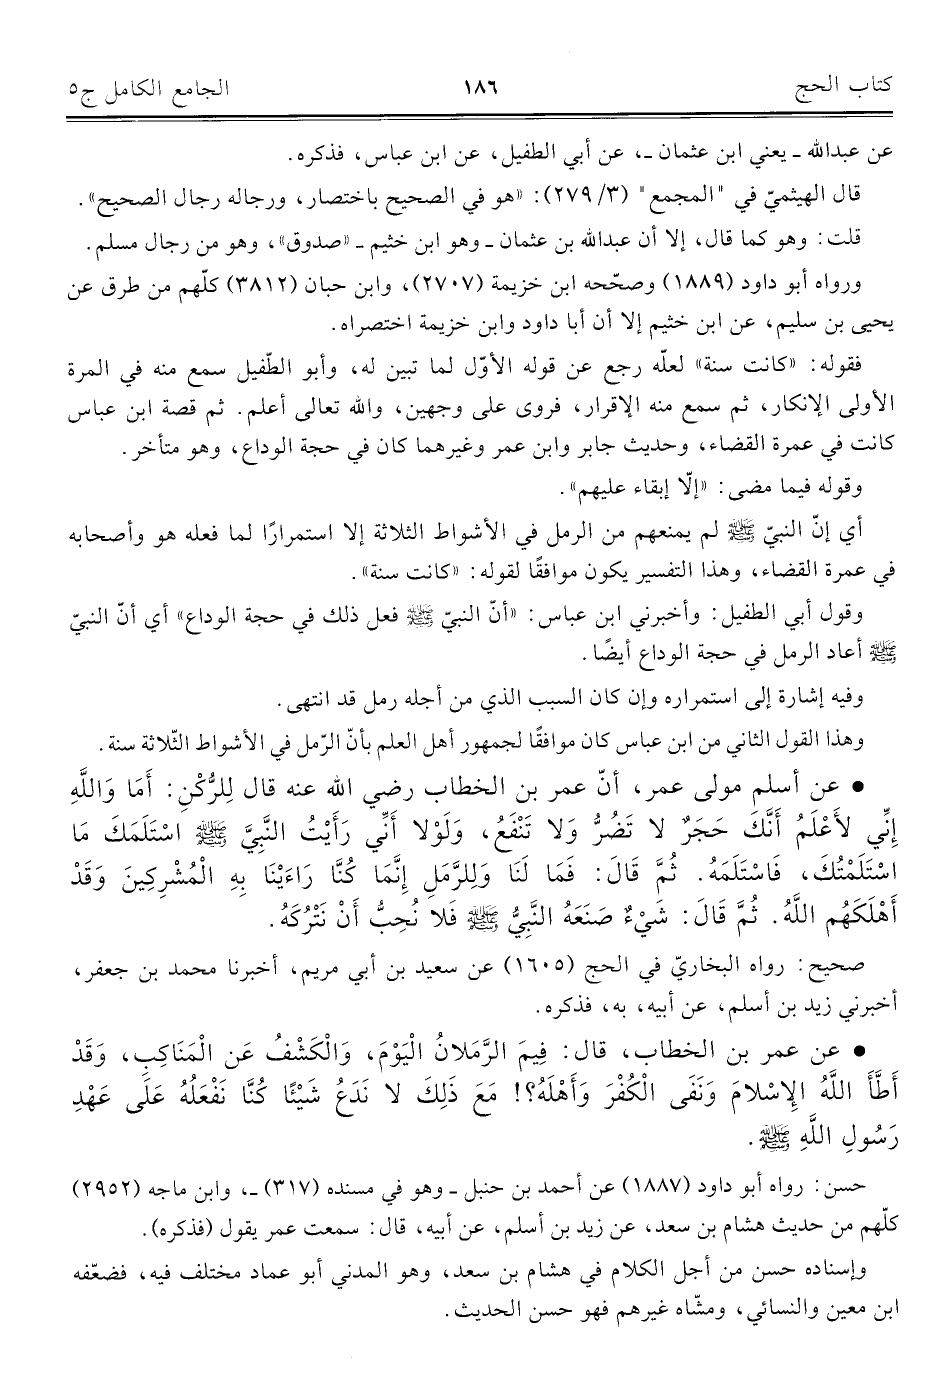 كتاب الحج ١٨٦ الجامع الكامل ج٥
عن عبدالله ـ يعني ابن عثمان ـ، عن أبي الطفيل، عن ابن عباس، فذكره.
قال الهيثميّ في "المجمع" (٣/ ٢٧٩): «هو في الصحيح باختصار، ورجاله رجال الصحيح».
قلت: وهو كما قال، إلا أن عبدالله بن عثمان ـ وهو ابن خثيم ـ «صدوق»، وهو من رجال مسلم.
ورواه أبو داود (١٨٨٩) وصحّحه ابن خزيمة (٢٧٠٧)، وابن حبان (٣٨١٢) كلّهم من طرق عن
يحيى بن سليم، عن ابن خثيم إلا أن أبا داود وابن خزيمة اختصراه.
فقوله: «كانت سنة» لعلّه رجع عن قوله الأوّل لما تبين له، وأبو الطّفيل سمع منه في المرة
الأولى الإنكار، ثم سمع منه الإقرار، فروى على وجهين، والله تعالى أعلم. ثم قصة ابن عباس
كانت في عمرة القضاء، وحديث جابر وابن عمر وغيرهما كان في حجة الوداع، وهو متأخر.
وقوله فيما مضى: «إلّا إبقاء عليهم».
أي إنّ النبيّ ﷺ لم يمنعهم من الرمل في الأشواط الثلاثة إلا استمرارًا لما فعله هو وأصحابه
في عمرة القضاء، وهذا التفسير يكون موافقًا لقوله: «كانت سنة».
وقول أبي الطفيل: وأخبرني ابن عباس: «أنّ النبيّ ﷺ فعل ذلك في حجة الوداع» أي أنّ النبيّ
ﷺ أعاد الرمل في حجة الوداع أيضًا.
وفيه إشارة إلى استمراره وإن كان السبب الذي من أجله رمل قد انتهى.
وهذا القول الثاني من ابن عباس كان موافقًا لجمهور أهل العلم بأنّ الرّمل في الأشواط الثّلاثة سنة.
• عن أسلم مولى عمر، أنّ عمر بن الخطاب رضي الله عنه قال لِلرُّكْنِ: أَمَا وَاللَّهِ
إِنِّي لأَعْلَمُ أَنَّكَ حَجَرٌ لا تَضُرُّ وَلا تَنْفَعُ، وَلَوْلا أَنِّي رَأَيْتُ النَّبِيَّ ﷺ اسْتَلَمَكَ مَا
اسْتَلَمْتُكَ، فَاسْتَلَمَهُ. ثُمَّ قَالَ: فَمَا لَنَا وَلِلرَّمَلِ إِنَّمَا كُنَّا رَاءَيْنَا بِهِ الْمُشْرِكِينَ وَقَدْ
أَهْلَكَهُم اللَّهُ. ثُمَّ قَالَ: شَيْءٌ صَنَعَهُ النَّبِيُّ ﷺ فَلا نُحِبُّ أَنْ نَتْرُكَهُ.
صحيح: رواه البخاريّ في الحج (١٦٠٥) عن سعيد بن أبي مريم، أخبرنا محمد بن جعفر،
أخبرني زيد بن أسلم، عن أبيه، به، فذكره.
• عن عمر بن الخطاب، قال: فِيمَ الرَّمَلانُ الْيَوْمَ، وَالْكَشْفُ عَنِ الْمَنَاكِبِ، وَقَدْ
أَطَّأَ اللَّهُ الإِسْلامَ وَنَفَى الْكُفْرَ وَأَهْلَهُ؟! مَعَ ذَلِكَ لا نَدَعُ شَيْئًا كُنَّا نَفْعَلُهُ عَلَى عَهْدِ
رَسُولِ اللَّهِ ﷺ.
حسن: رواه أبو داود (١٨٨٧) عن أحمد بن حنبل ـ وهو في مسنده (٣١٧) ـ، وابن ماجه (٢٩٥٢)
كلّهم من حديث هشام بن سعد، عن زيد بن أسلم، عن أبيه، قال: سمعت عمر يقول (فذكره).
وإسناده حسن من أجل الكلام في هشام بن سعد، وهو المدني أبو عماد مختلف فيه، فضعّفه
ابن معين والنسائي، ومشّاه غيرهم فهو حسن الحديث.